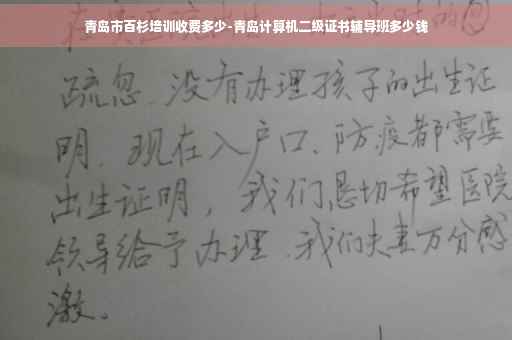 青岛市百杉培训收费多少-青岛计算机二级证书辅导班多少钱
疏忽、没有办理孩子的出生证
明、现在入户口、防疫都需要
出生证明，我们恳切希望医院
领导给予办理、我们夫妻万分感
激。